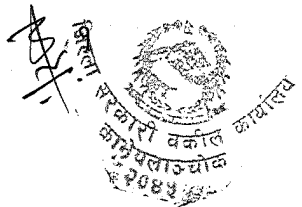 जिल्ला सरकारी वकील कार्यालय
काभ्रेपलाञ्चोक
२०४५